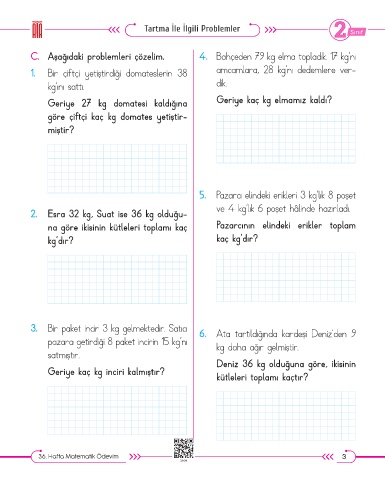 ATA
Tartma İle İlgili Problemler
2. Sınıf
C. Aşağıdaki problemleri çözelim.
1. Bir çiftçi yetiştirdiği domateslerin 38
kg'ını sattı.
Geriye 27 kg domatesi kaldığına
göre çiftçi kaç kg domates yetiştir-
miştir?
2. Esra 32 kg, Suat ise 36 kg olduğu-
na göre ikisinin kütleleri toplamı kaç
kg'dır?
3. Bir paket incir 3 kg gelmektedir. Satıcı
pazara getirdiği 8 paket incirin 15 kg'nı
satmıştır.
Geriye kaç kg inciri kalmıştır?
4. Bahçeden 79 kg elma topladık. 17 kg'nı
amcamlara, 28 kg'nı dedemlere ver-
dik.
Geriye kaç kg elmamız kaldı?
5. Pazarcı elindeki erikleri 3 kg'lık 8 poşet
ve 4 kg'lık 6 poşet hâlinde hazırladı.
Pazarcının elindeki erikler toplam
kaç kg'dır?
6. Ata tartıldığında kardeşi Deniz'den 9
kg daha ağır gelmiştir.
Deniz 36 kg olduğuna göre, ikisinin
kütleleri toplamı kaçtır?
36. Hafta Matematik Ödevim
3